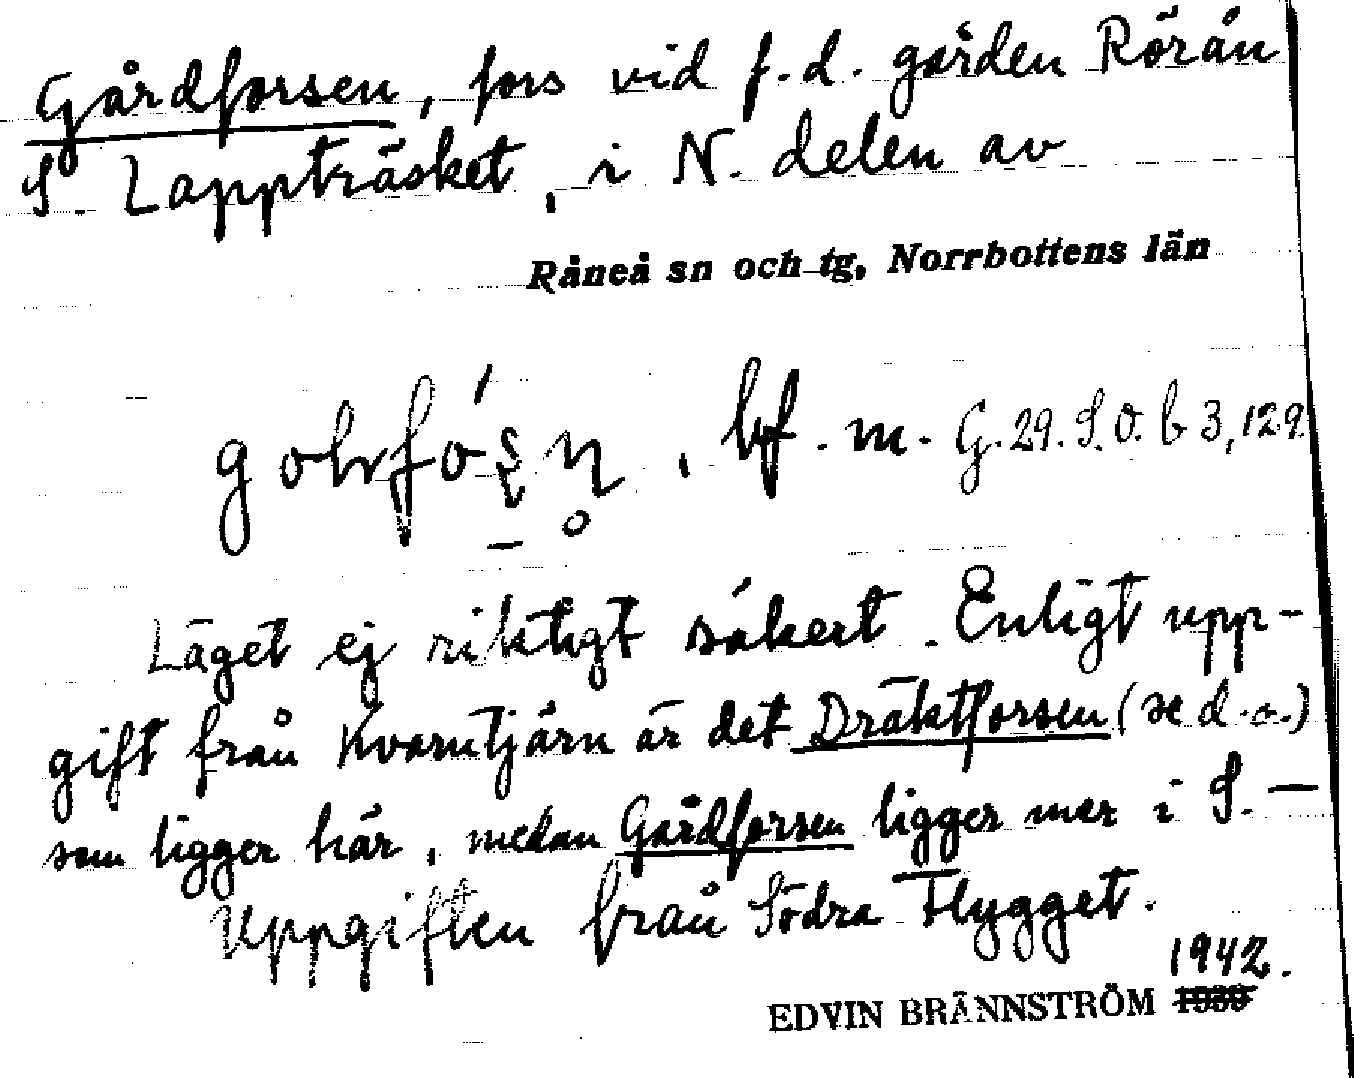 Gårdforsen, fors vid f.d. gården Rörån
S. Lappträsket, i N. delen av
Råneå sn och tg, Norrbottens län
bf. m. G. 29. S.O. b 3, 129.
Läget ej riktigt säkert. Enligt upp-
gift från Kvarntjärn är det Dräktforsen (se d.o.)
som ligger här, medan Gårdforsen ligger mer i S. —
Uppgiften från Södra Flygget.
1942.
EDVIN BRÄNNSTRÖM 1939